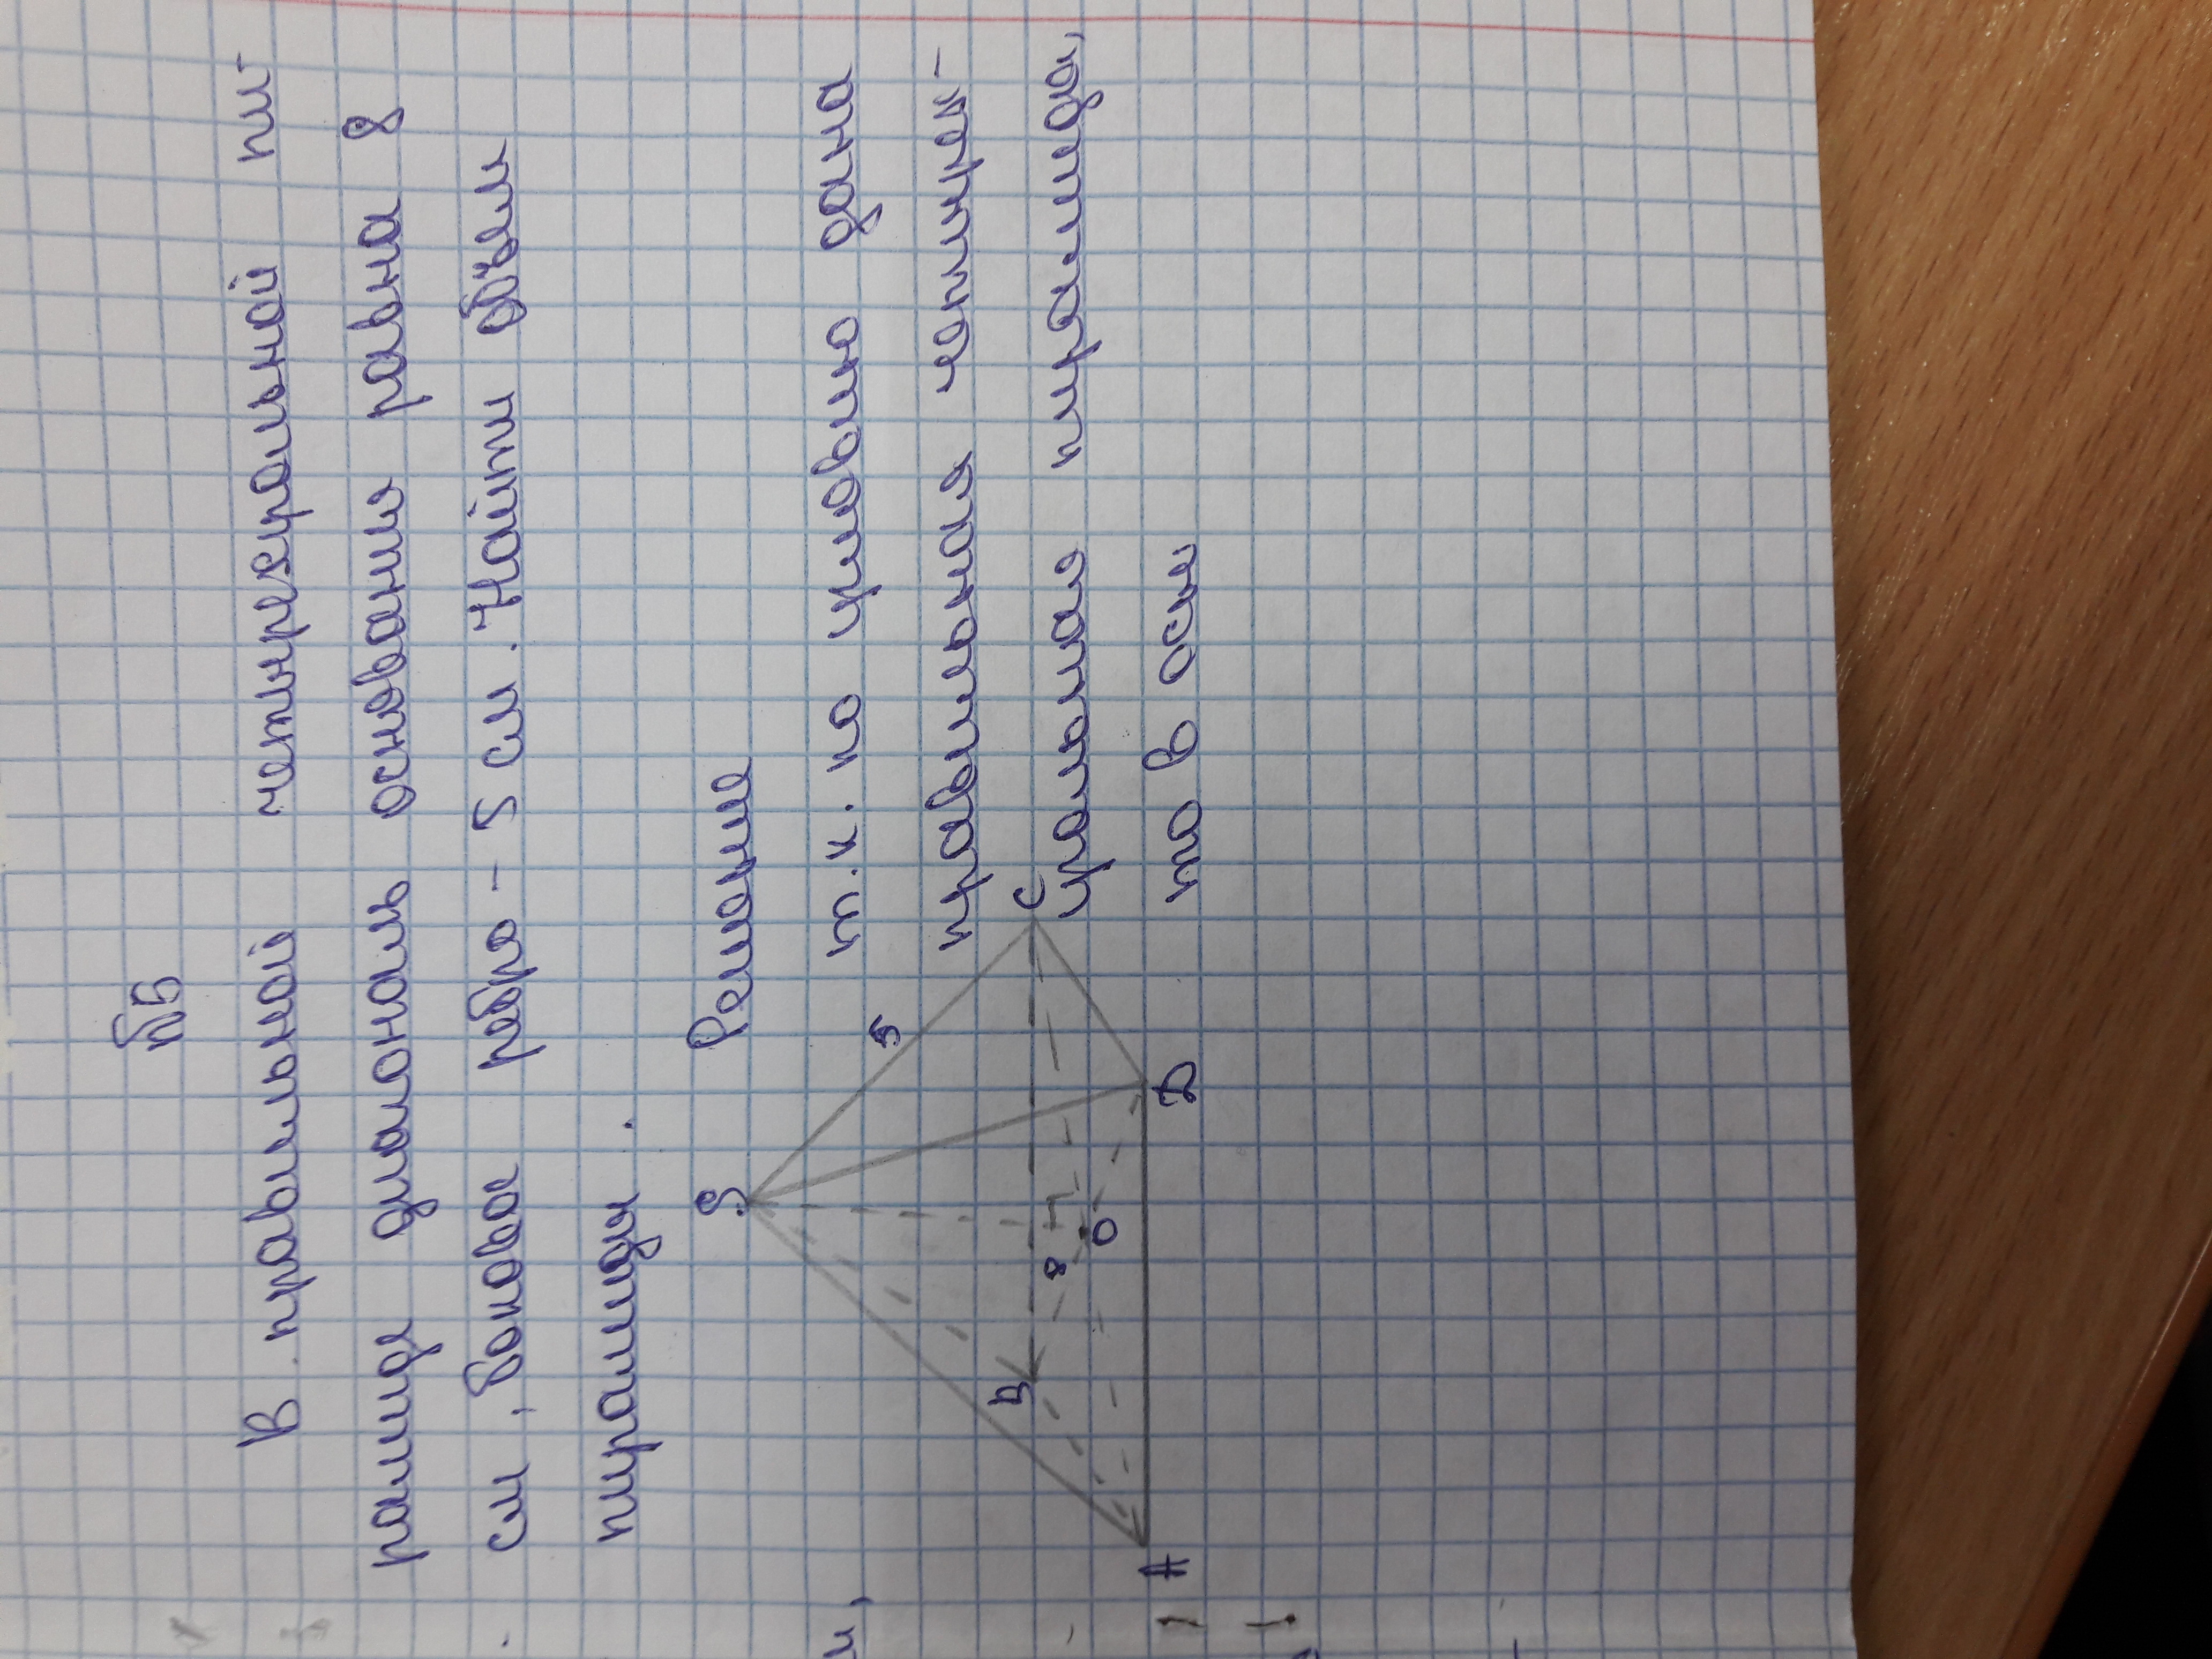 пБ
В правильной четырехугольной пи-
рамиде диагональ основания равна 8
см, боковое ребро - 5 см. Найти объем
пирамиды.
Решение
т.к. по условию дана
правильная четырех-
угольная пирамида,
то в осн
S
5
B
8
C
O
A
D